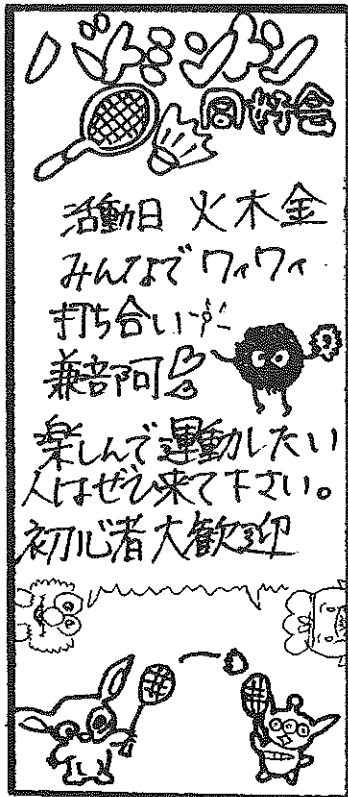 バトミントン
同好会
活動日 火木金
みんなで ワイワイ
打ち合い
兼部可
楽しんで運動したい
人はぜひ来て下さい。
初心者大歓迎